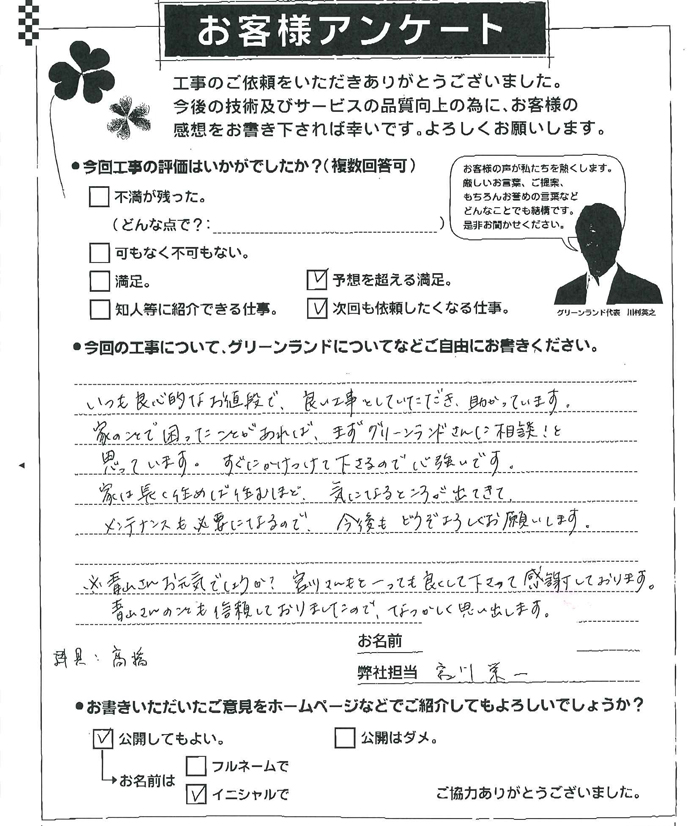 お客様アンケート
工事のご依頼をいただきありがとうございました。
今後の技術及びサービスの品質向上の為に、お客様の
感想をお書き下されば幸いです。よろしくお願いします。
●今回工事の評価はいかがでしたか?(複数回答可)
不満が残った。
(どんな点で?: )
可もなく不可もない。
満足。
予想を超える満足。
知人等に紹介できる仕事。
次回も依頼したくなる仕事。
お客様の声が私たちを熱くします。
厳しいお言葉、ご提案、
もちろんお誉めの言葉など
どんなことでも結構です。
是非お聞かせください。
グリーンランド代表 川村英之
●今回の工事について、グリーンランドについてなどご自由にお書きください。
いつも良心的なお値段で、良い工事をしていただき、助かっています。
家のことで困ったことがあれば、まずグリーンランドさんに相談!と
思っています。すぐにかけつけて下さるので心強いです。
家は長く住めば住むほど、気になるところが出てきて、
メンテナンスも必要になるので、今後もどうぞよろしくお願いします。
※青山さんお元気でしょうか? 宮川さんもとっても良くして下さって感謝しております。
青山さんのことも信頼しておりましたので、なつかしく思い出します。
お名前
髙橋
弊社担当 宮川 一
●お書きいただいたご意見をホームページなどでご紹介してもよろしいでしょうか?
公開してもよい。
公開はダメ。
お名前は
フルネームで
イニシャルで
ご協力ありがとうございました。